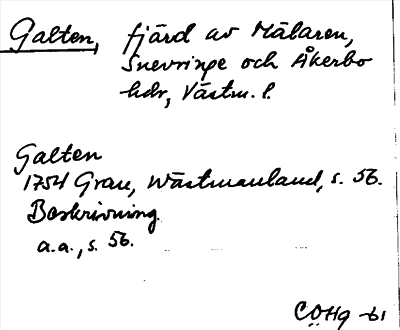 Galten, fjärd av Mälaren,
Snevringe och Åkerbo
hdr, Västm. l.
Galten
1754 Grau, Wästmanland, s. 56.
Beskrivning.
a.a., s. 56.
CÖHg -61